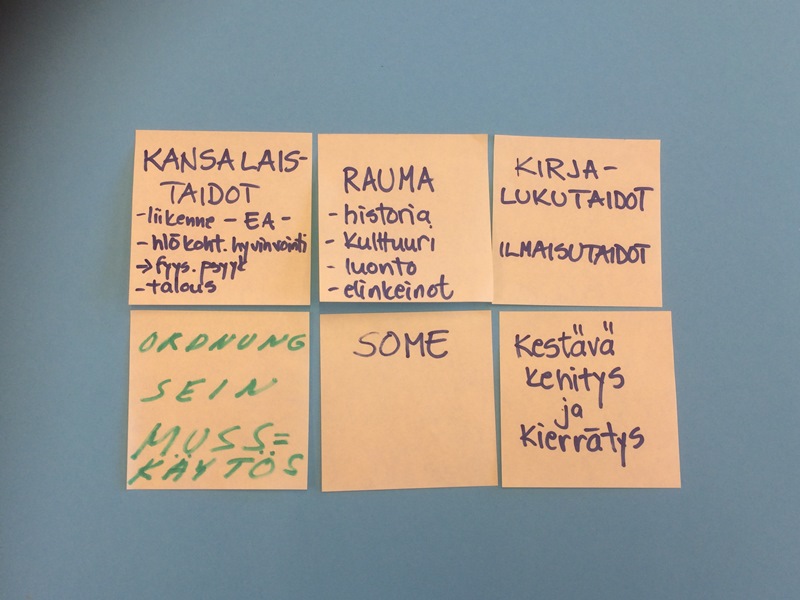 KANSALAIS-
TAIDOT
-liikenne - EA -
- hlökoht. hyvinvointi
→ fyys. psyyk
- talous
RAUMA
- historia
- kulttuuri
- luonto
- elinkeinot
KIRJA-
LUKUTAIDOT
ILMAISUTAIDOT
ORDNUNG
SEIN
MUSS=
KÄYTÖS
SOME
Kestävä
kehitys
ja
kierrätys